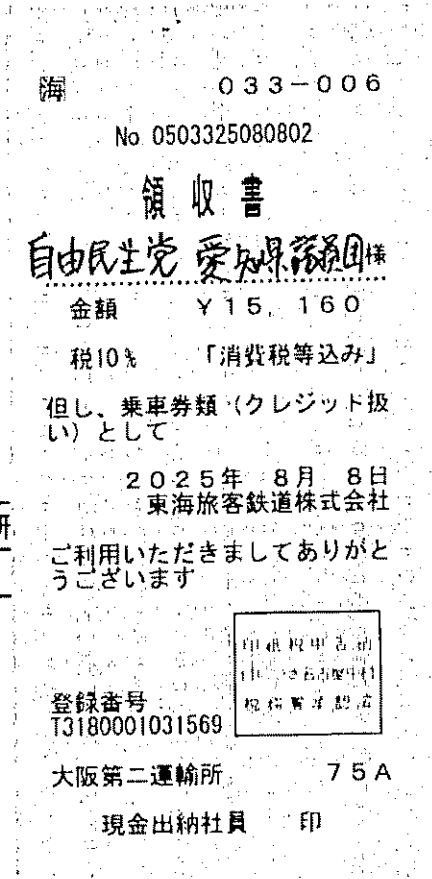 海 033-006
No 0503325080802
領収書
自由民主党 愛知県議員団様
金額 ¥15,160
税10% 「消費税等込み」
但し、乗車券類(クレジット扱
い)として
2025年 8月 8日
東海旅客鉄道株式会社
研
ご利用いただきましてありがと
うございます
印紙税申告納
付につき名古屋中村
税務署承認済
登録番号
T3180001031569
大阪第二運輸所 75A
現金出納社員 印